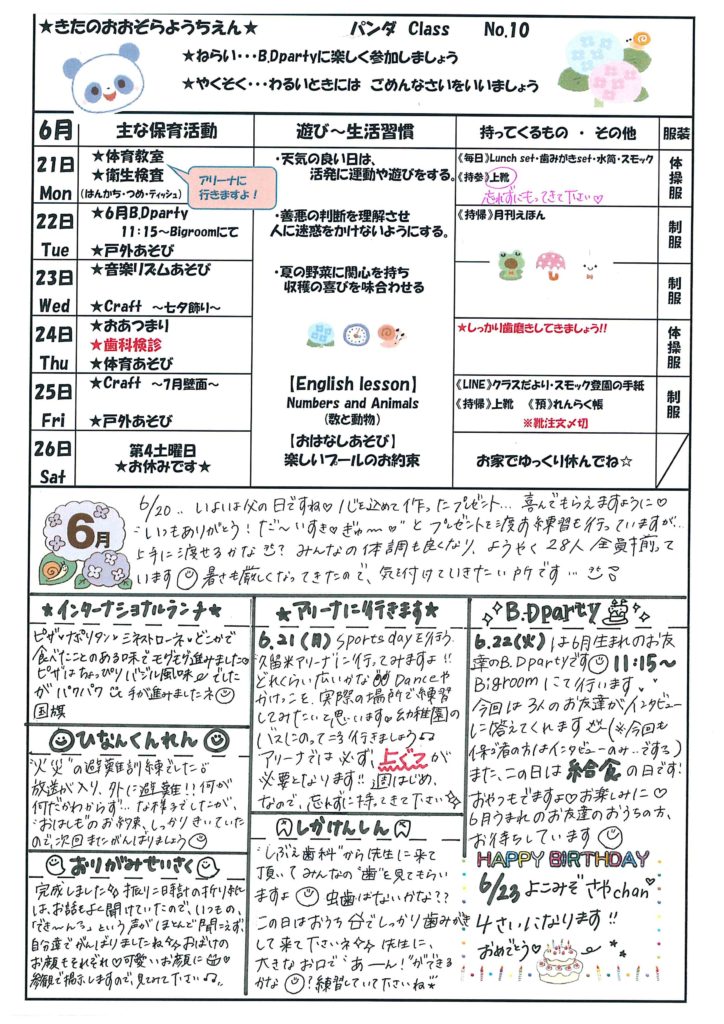 ★きたのおおぞらようちえん★ パンダ Class No.10
★ねらい・・・B.Dpartyに楽しく参加しましょう
★やくそく・・・わるいときには ごめんなさいをいいましょう
6月 主な保育活動 遊び～生活習慣 持ってくるもの ・ その他 服装
21日 Mon
★体育教室
★衛生検査
(はんかち・つめ・ティッシュ)
アリーナに
行きますよ！
・天気の良い日は、
活発に運動や遊びをする。
《毎日》Lunch set・歯みがきset・水筒・スモック
《持参》上靴
忘れずにもってきて下さい♡
体操服
22日 Tue
★6月B.Dparty
11：15～Bigroomにて
★戸外あそび
・善悪の判断を理解させ
人に迷惑をかけないようにする。
《持帰》月刊えほん
制服
23日 Wed
★音楽リズムあそび
★Craft ～七夕飾り～
・夏の野菜に関心を持ち
収穫の喜びを味合わせる
制服
24日 Thu
★おあつまり
★歯科検診
★体育あそび
★しっかり歯磨きしてきましょう!!
体操服
25日 Fri
★Craft ～7月壁面～
★戸外あそび
【English lesson】
Numbers and Animals
(数と動物)
《LINE》クラスだより・スモック登園の手紙
《持帰》上靴 《預》れんらく帳
※靴注文〆切
制服
26日 Sat
第4土曜日
★お休みです★
【おはなしあそび】
楽しいプールのお約束
お家でゆっくり休んでね☆
6月
6/20‥いよいよ父の日ですね♡心を込めて作ったプレゼント…喜んでもらえますように♡
"いつもありがとう！だ～いすき♡ぎゅ～♡"とプレゼントを渡す練習も行っていますが…
上手に渡せるかな？みんなの体調も良くなり、ようやく28人全員揃って
います 暑さも厳しくなってきたので、気を付けていきたいですね…
★インターナショナルランチ★
ピザ♡ナポリタン♡ミネストローネ♡どこかで
食べたことのある味でモグモグ進みました♡
ピザはちょっぴりバジル風味でした
がパクパクと手が進みましたネ
国旗
ひなんくんれん
"火災"の避難訓練でした
放送が入り、外に避難!!何が
何だかわからず…な様子でしたが、
"おはしも"のお約束、しっかりきいていた
ので、次回またがんばりましょう
おりがみせいさく
完成しました 振り子時計の折り紙
は、お話もよく聞けていたので、いつもの、
「でき～んろ」という声がほとんど聞こえず、
自分達でがんばりましたね おばけの
お顔もそれぞれ♡可愛いお顔に
参観で掲示しますので、見てみて下さい♪
★アリーナに行きます★
6.21(月) Sports dayを行う、
久留米アリーナに行ってみますよ!!
どれくらい広いかな Danceや
かけっこを、実際の場所で練習
してみたいと思います♡幼稚園の
バスにのってGo!行きましょう♪
アリーナでは必ず、上ぐつが
必要となります!!週はじめ、
なので、忘れずに持ってきて下さい☆
しかけんしん
"しぶえ歯科"から先生に来て
頂いてみんなの"歯"を見てもらい
ますよ 虫歯はないかな??
この日はおうちでしっかり歯みがき
して来て下さいネ☆先生に、
大きなお口で"あーん！"ができる
かな？練習していて下さいね"
B.Dparty
6.22(火)は6月生まれのお友
達のB.Dpartyです 11:15～
Bigroomにて行います♡
今回は3人のお友達がインタビュー
に答えてくれます(※今回も
保護者の方はインタビューのみ…ですよ)
また、この日は給食の日です！
おやつもでますよ♡お楽しみに♡
6月うまれのお友達のおうちの方、
お待ちしています
HAPPY BIRTHDAY
6/23 よこみぞ さやchan♡
4さいになります!!
おめでとう♡